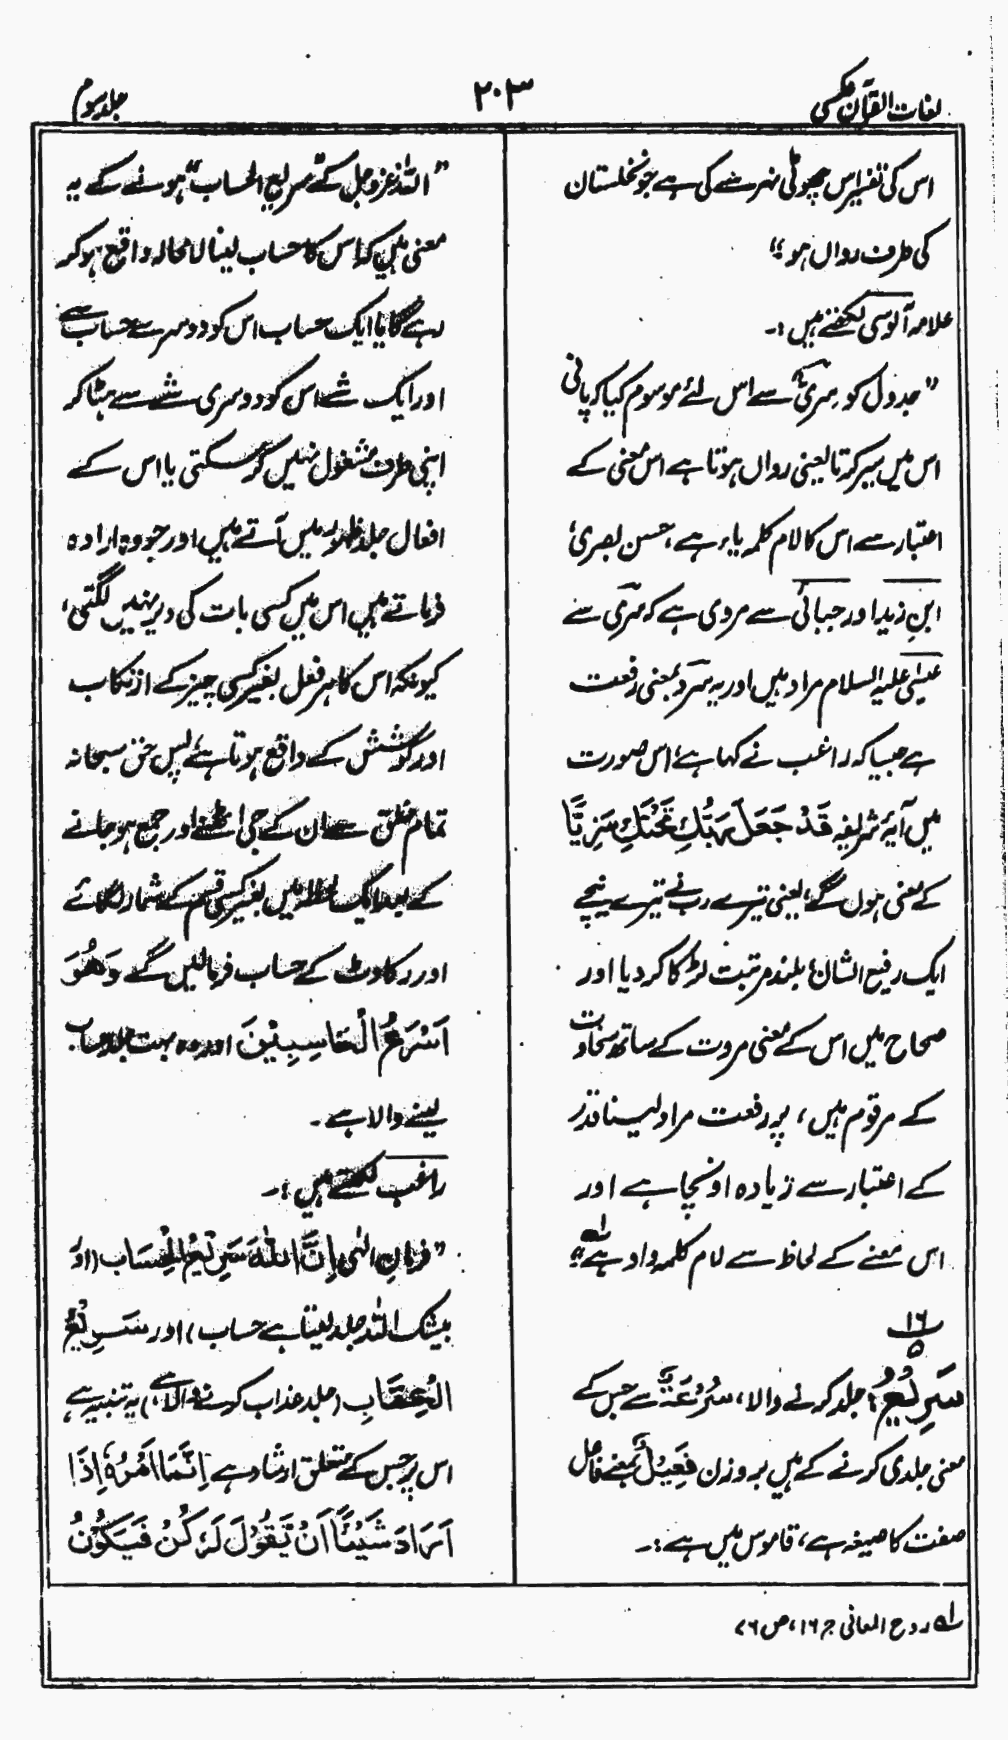 لغات القرآن عکسی
۲۰۳
جلد سوم
اس کی تفسیر اس چھوٹی نہر سے کی ہے جو نخلستان
کی طرف رواں ہو"
علامہ آلوسی لکھتے ہیں :۔
"جدول کو سَرِیّ سے اس لئے موسوم کیا کہ پانی
اس میں سیر کرتا یعنی رواں ہوتا ہے اس معنی کے
اعتبار سے اس کا لام کلمہ یاء ہے، حسن بصریؒ
ابنِ زید اور جبائی سے مروی ہے کہ سَرِیّ سے
عیسٰی علیہ السلام مراد ہیں اور یہ سَرْو بمعنی رفعت
ہے جیسا کہ راغب نے کہا ہے، اس صورت
میں آیۂ شریفہ قَدْ جَعَلَ رَبُّكِ تَحْتَكِ سَرِيًّا
کے معنی ہوں گے، یعنی تیرے رب نے تیرے نیچے
ایک رفیع الشان، بلند مرتبت لڑکا کر دیا اور
صحاح میں اس کے معنی مروت کے ساتھ سخاوت
کے مرقوم ہیں، پر رفعت مراد لینا قدر
کے اعتبار سے زیادہ اونچا ہے اور
اس معنے کے لحاظ سے لام کلمہ واو ہے" لہ
۱۶
۵
سَرِيْعُ: جلد کرنے والا، سُرْعَةٌ سے جس کے
معنی جلدی کرنے کے ہیں بروزن فَعِيْلٌ بمعنے فاعل
صفت کا صیغہ ہے، قاموس میں ہے :۔
"اللہ عزوجل کے "سریع الحساب" ہونے کے یہ
معنی ہیں کہ اس کا حساب لینا لامحالہ واقع ہو کر
رہے گا یا ایک حساب اس کو دوسرے حساب سے
اور ایک شے اس کو دوسری شے سے ہٹا کر
اپنی طرف مشغول نہیں کر سکتی یا اس کے
افعال جلد ظہور میں آتے ہیں اور جو وہ ارادہ
فرماتے ہیں اس میں کسی بات کی دیر نہیں لگتی،
کیونکہ اس کا ہر فعل بغیر کسی چیز کے ارتکاب
اور کوشش کے واقع ہوتا ہے، پس حق سبحانہ
تمام خلق سے ان کے جی اٹھنے اور جمع ہو جانے
کے بعد ایک لحظہ میں بغیر کسی قسم کے شمار لگائے
اور رکاوٹ کے حساب فرمالیں گے وَهُوَ
اَسْرَعُ الْحَاسِبِيْنَ اور وہ بہت جلد حساب
لینے والا ہے ۔
راغب لکھتے ہیں :۔
"فرمانِ الٰہی اِنَّ اللّٰهَ سَرِيْعُ الْحِسَابِ (اور
بیشک اللہ جلد لیتا ہے حساب) اور سَرِيْعُ
الْعِقَابِ (جلد عذاب کرنے والا ہے) یہ تنبیہ ہے
اس پر جس کے متعلق ارشاد ہے اِنَّمَا اَمْرُهٗ اِذَا
اَرَادَ شَيْئًا اَنْ يَّقُوْلَ لَهٗ كُنْ فَيَكُوْنُ
لہ روح المعانی ج ۱۶، ص ۷۶